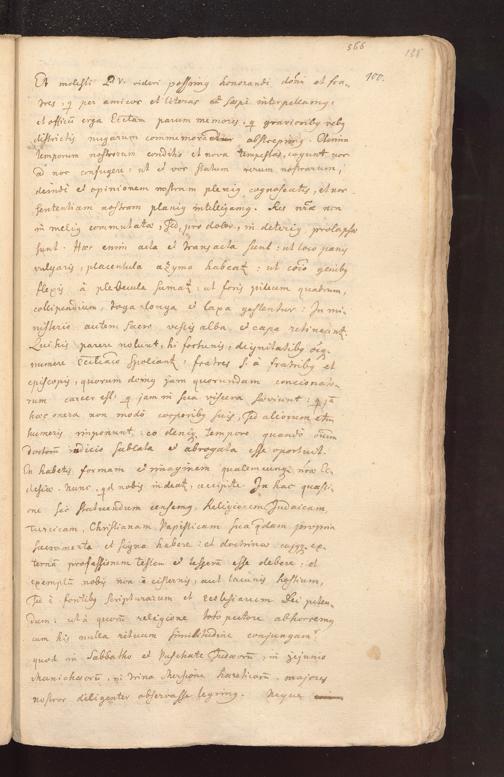 566
138
100.
Et molesti D. V. videri possimus honorandi domi et fra-
tres, q per amicos et literas et saepe interpellamus,
et officii erga Ecclam parum memores, q graviorib reb
districtis nugarum commemoratione obstrepimus.
temporum nostrorum conditio et nova tempestas, cogunt nos
ad vos confugere, ut et vos statum rerum nostrarum,
deinde et opinionem nostram plenius cognoscatis, et nos
sententiam vostram planius intelligamus. Res nrae non
in melius commutatae, sed, pro dolor, in deterius prolapsae
sunt. Haec enim acta et transacta sunt: ut loco panis
vulgaris, placentula azyma habeat: ut coro genibus
flexis à plebecula sumat: ut foris pileum quadrum,
collipendium, toga longa et capa gestentur: In mi-
nisterio autem sacro vestis alba, et capa retineant.
Qui his parere nolunt, hi fortunis, dignitatibus
munere Eccliastico spoliant, fratres à fratribus et
episcopis, quorum domus jam quorundam concionato-
rum carcer est, q jam in sua viscera saeviunt: q jam
haec onera non modò corporibus suis, sed aliorum etm
humeris imponunt: eo deniq tempore quando omm
doctorum iudicio sublata et abrogata esse oportuit.
En habetis formam et imaginem qualemcunq nrae Ec-
clesiae. Nunc, quid nobis videat, accipite. In hac quaesti-
one sic statuendum censemus. Religionem Judaicam,
Turcicam, Christianam, Papisticam sua quaedam propria
sacramenta et signa habere: et doctrinae cujusq ex-
ternam professionem testem et tesseram esse debere: et
exemplum nobis non è cisternis, aut lacunis hostium,
sed è fontibus scripturarum et Ecclesiarum Dei peten-
dum: ut à quorum religione toto pectore abhorremus
cum his nulla rituum similitudine conjungamur
quod in Sabbatho et Paschate Judaeorum, in jejunio
Manichaeorum, in trina mersione haereticorum, majores
nostros diligenter observasse legimus. Neque